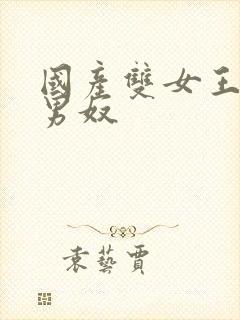 國產雙女王
男奴
袁藝賈